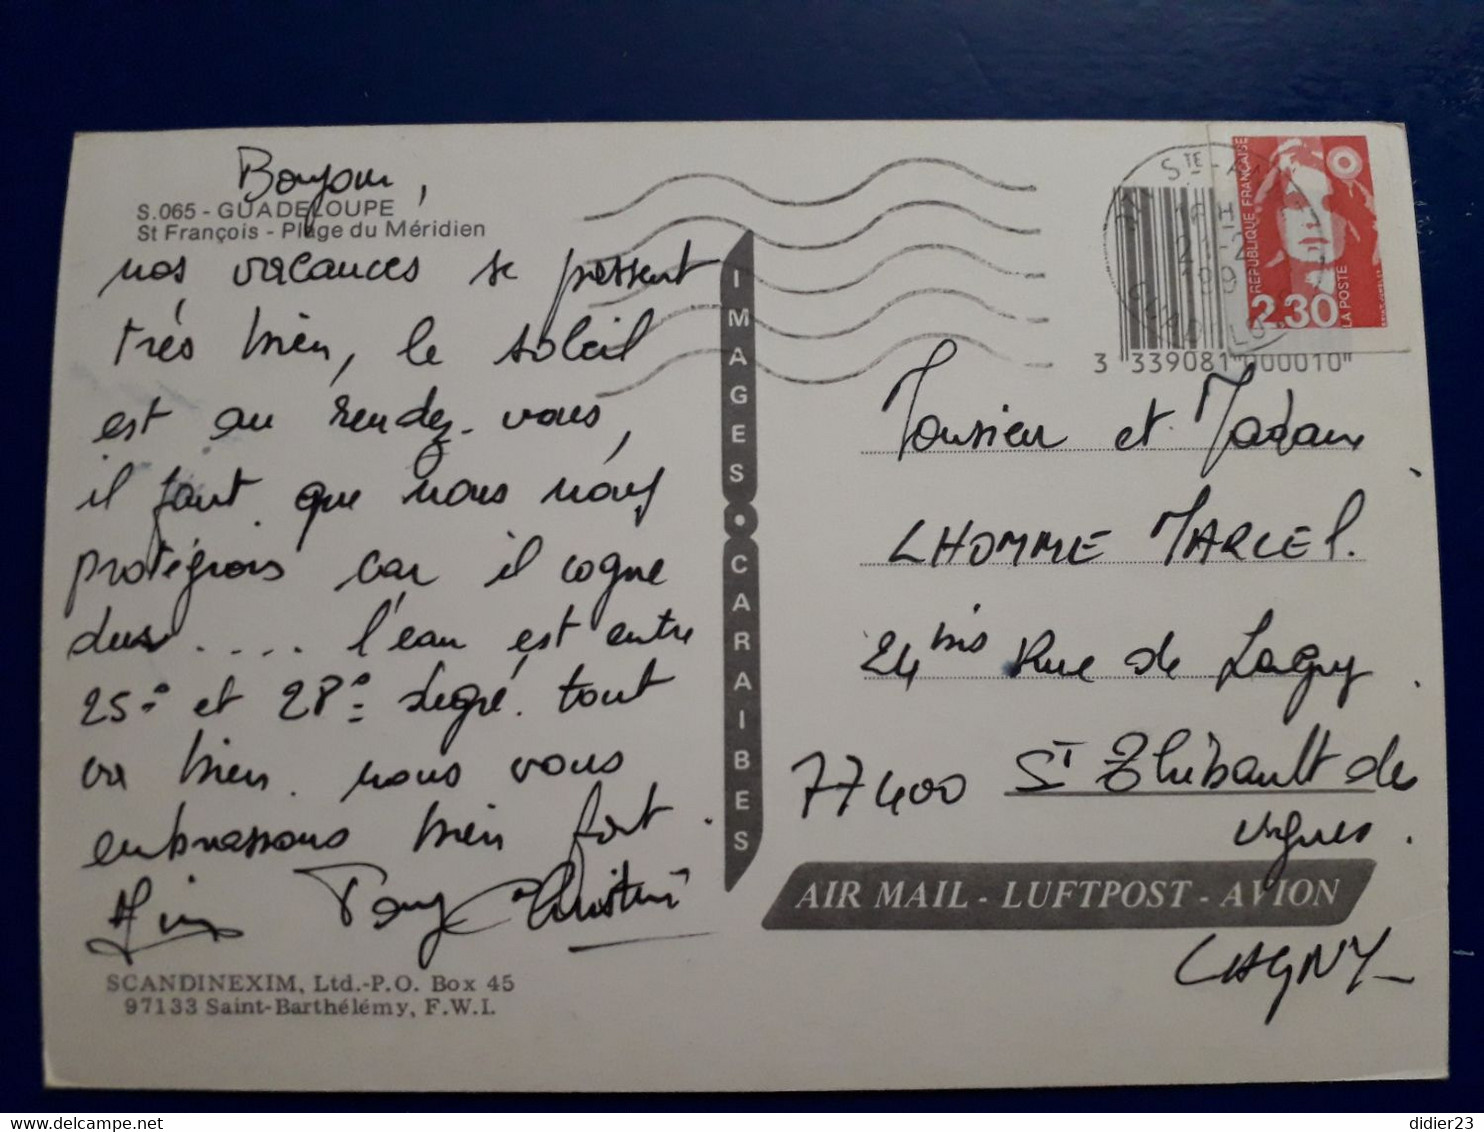 Bonjour,
S.065 - GUADELOUPE
St François - Plage du Méridien
nos vacances se passent
très bien, le soleil
est au rendez-vous,
il faut que nous nous
protégions car il cogne
dur..... l'eau est entre
25° et 28° degré. tout
va bien. nous vous
embrassons bien fort.
Tony Christine
SCANDINEXIM, Ltd.-P.O. Box 45
97133 Saint-Barthélémy, F.W.I.
IMAGES • CARAIBES
STE-A
16H
21-2
199
GUADELOU
REPUBLIQUE FRANÇAISE
2,30
LA POSTE
3 339081 000010
Monsieur et Madame
LHOMME MARCEL.
24 bis Rue de Lagny.
77400 ST Thibault des
vignes.
AIR MAIL - LUFTPOST - AVION
LAGNY
didier23